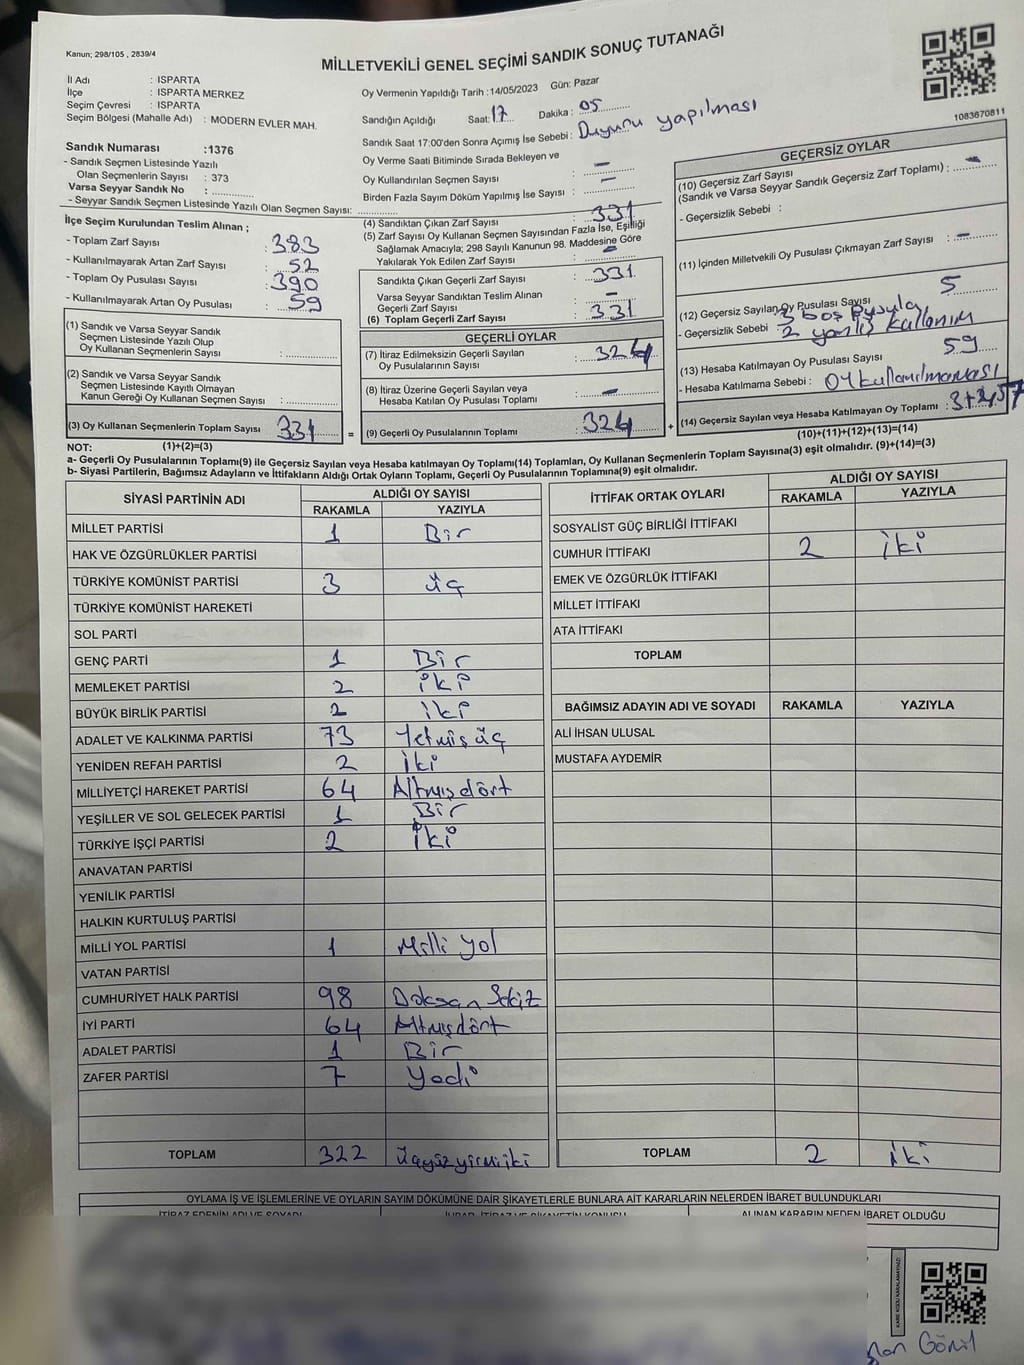 Kanun; 298/105 , 2839/4
MİLLETVEKİLİ GENEL SEÇİMİ SANDIK SONUÇ TUTANAĞI
İl Adı : ISPARTA
İlçe : ISPARTA MERKEZ
Seçim Çevresi : ISPARTA
Seçim Bölgesi (Mahalle Adı) : MODERN EVLER MAH.
Sandık Numarası :1376
- Sandık Seçmen Listesinde Yazılı
Olan Seçmenlerin Sayısı : 373
Varsa Seyyar Sandık No :
- Seyyar Sandık Seçmen Listesinde Yazılı Olan Seçmen Sayısı:
Oy Vermenin Yapıldığı Tarih :14/05/2023 Gün: Pazar
Sandığın Açıldığı Saat: 17 Dakika : 05
Sandık Saat 17:00'den Sonra Açımış İse Sebebi : Duyuru yapılması
Oy Verme Saati Bitiminde Sırada Bekleyen ve
Oy Kullandırılan Seçmen Sayısı : —
Birden Fazla Sayım Döküm Yapılmış İse Sayısı : —
1083670811
İlçe Seçim Kurulundan Teslim Alınan ;
- Toplam Zarf Sayısı : 383
- Kullanılmayarak Artan Zarf Sayısı : 52
- Toplam Oy Pusulası Sayısı : 390
- Kullanılmayarak Artan Oy Pusulası : 59
(1) Sandık ve Varsa Seyyar Sandık
Seçmen Listesinde Yazılı Olup
Oy Kullanan Seçmenlerin Sayısı :
(2) Sandık ve Varsa Seyyar Sandık
Seçmen Listesinde Kayıtlı Olmayan
Kanun Gereği Oy Kullanan Seçmen Sayısı :
(3) Oy Kullanan Seçmenlerin Toplam Sayısı 331 =
(1)+(2)=(3)
(4) Sandıktan Çıkan Zarf Sayısı : 331
(5) Zarf Sayısı Oy Kullanan Seçmen Sayısından Fazla İse, Eşitliği
Sağlamak Amacıyla; 298 Sayılı Kanunun 98. Maddesine Göre
Yakılarak Yok Edilen Zarf Sayısı : —
Sandıkta Çıkan Geçerli Zarf Sayısı : 331
Varsa Seyyar Sandıktan Teslim Alınan
Geçerli Zarf Sayısı : —
(6) Toplam Geçerli Zarf Sayısı : 331
GEÇERLİ OYLAR
(7) İtiraz Edilmeksizin Geçerli Sayılan
Oy Pusulalarının Sayısı : 324
(8) İtiraz Üzerine Geçerli Sayılan veya
Hesaba Katılan Oy Pusulası Toplamı : —
(9) Geçerli Oy Pusulalarının Toplamı : 324 +
GEÇERSİZ OYLAR
(10) Geçersiz Zarf Sayısı
(Sandık ve Varsa Seyyar Sandık Geçersiz Zarf Toplamı) : —
- Geçersizlik Sebebi :
(11) İçinden Milletvekili Oy Pusulası Çıkmayan Zarf Sayısı : —
(12) Geçersiz Sayılan Oy Pusulası Sayısı 5
3 boş pusula
- Geçersizlik Sebebi 2 yanlış kullanım
(13) Hesaba Katılmayan Oy Pusulası Sayısı 59
- Hesaba Katılmama Sebebi : Oy kullanılmaması
(14) Geçersiz Sayılan veya Hesaba Katılmayan Oy Toplamı :
(10)+(11)+(12)+(13)=(14)
NOT:
a- Geçerli Oy Pusulalarının Toplamı(9) ile Geçersiz Sayılan veya Hesaba katılmayan Oy Toplamı(14) Toplamları, Oy Kullanan Seçmenlerin Toplam Sayısına(3) eşit olmalıdır. (9)+(14)=(3)
b- Siyasi Partilerin, Bağımsız Adayların ve İttifakların Aldığı Ortak Oyların Toplamı, Geçerli Oy Pusulalarının Toplamına(9) eşit olmalıdır.
SİYASİ PARTİNİN ADI ALDIĞI OY SAYISI
RAKAMLA YAZIYLA
MİLLET PARTİSİ 1 Bir
HAK VE ÖZGÜRLÜKLER PARTİSİ
TÜRKİYE KOMÜNİST PARTİSİ 3 üç
TÜRKİYE KOMÜNİST HAREKETİ
SOL PARTİ
GENÇ PARTİ 1 Bir
MEMLEKET PARTİSİ 2 iki
BÜYÜK BİRLİK PARTİSİ 2 iki
ADALET VE KALKINMA PARTİSİ 73 Yetmiş üç
YENİDEN REFAH PARTİSİ 2 İki
MİLLİYETÇİ HAREKET PARTİSİ 64 Altmış dört
YEŞİLLER VE SOL GELECEK PARTİSİ 1 Bir
TÜRKİYE İŞÇİ PARTİSİ 2 İki
ANAVATAN PARTİSİ
YENİLİK PARTİSİ
HALKIN KURTULUŞ PARTİSİ
MİLLİ YOL PARTİSİ 1 Milli yol
VATAN PARTİSİ
CUMHURİYET HALK PARTİSİ 98 Doksan Sekiz
İYİ PARTİ 64 Altmış dört
ADALET PARTİSİ 1 Bir
ZAFER PARTİSİ 7 Yedi
TOPLAM 322 üçyüz yirmi iki
İTTİFAK ORTAK OYLARI ALDIĞI OY SAYISI
RAKAMLA YAZIYLA
SOSYALİST GÜÇ BİRLİĞİ İTTİFAKI
CUMHUR İTTİFAKI 2 iki
EMEK VE ÖZGÜRLÜK İTTİFAKI
MİLLET İTTİFAKI
ATA İTTİFAKI
TOPLAM
BAĞIMSIZ ADAYIN ADI VE SOYADI RAKAMLA YAZIYLA
ALİ İHSAN ULUSAL
MUSTAFA AYDEMİR
TOPLAM 2 iki
OYLAMA İŞ VE İŞLEMLERİNE VE OYLARIN SAYIM DÖKÜMÜNE DAİR ŞİKAYETLERLE BUNLARA AİT KARARLARIN NELERDEN İBARET BULUNDUKLARI
İTİRAZ EDENİN ADI VE SOYADI
ALINAN KARARIN NEDEN İBARET OLDUĞU
Gönül